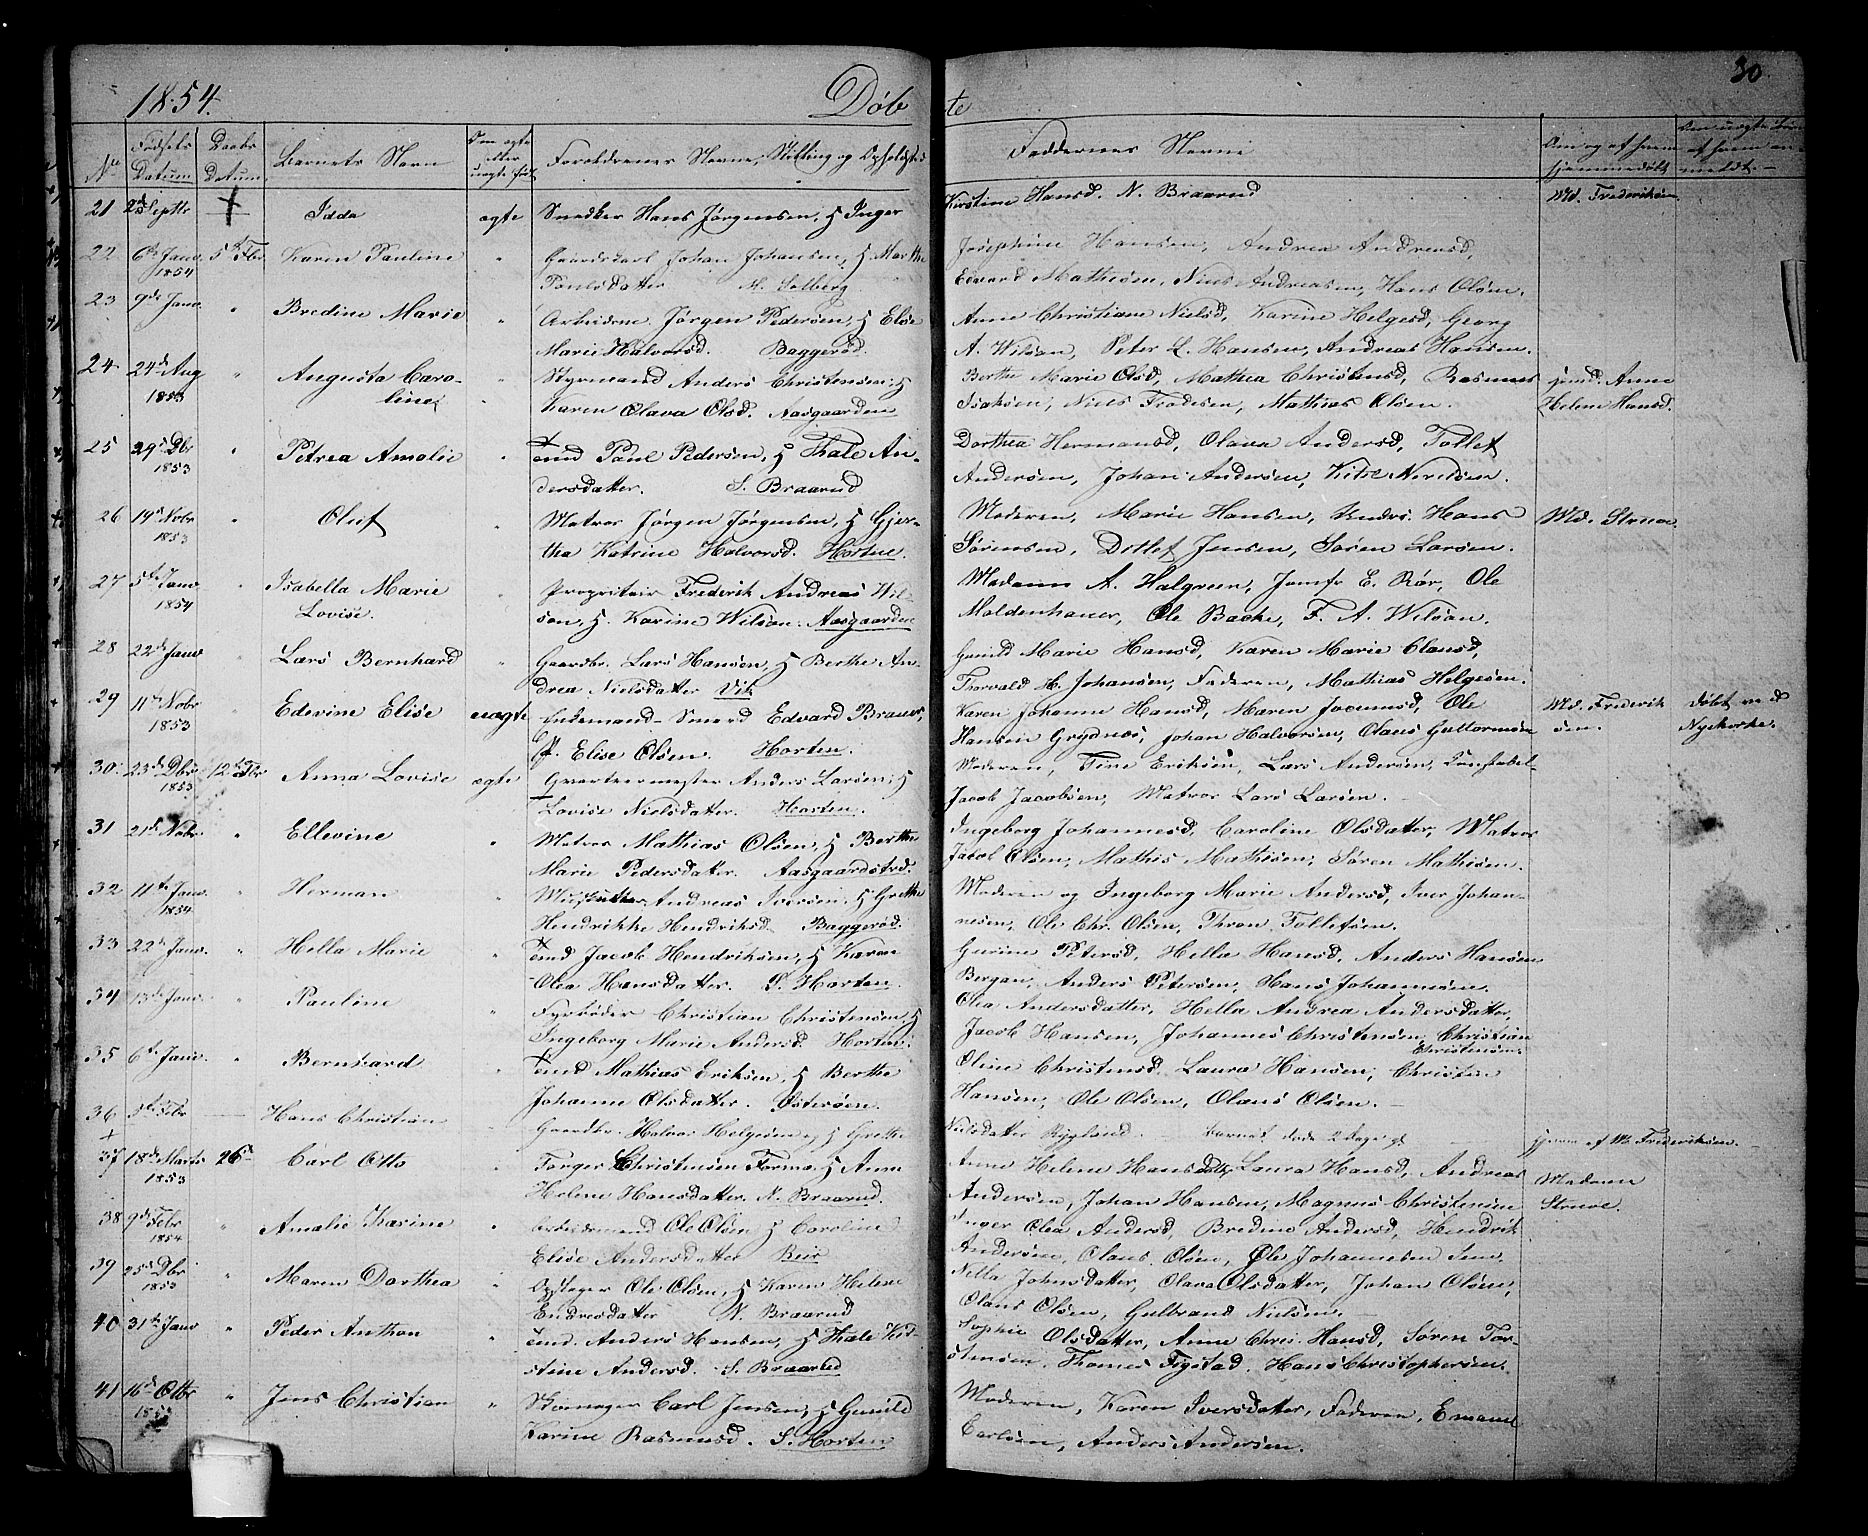 1854. Døbte 30.
No Fødsels Datum Daabs Datum Barnets Navn Om ægte eller uægte født Forældrenes Navne, Stilling og Opholdssted
Faddernes Navne Om og af hvem hjemmedøbt
21 Septbr + Idda ægte Snedker Hans Jørgensen, H Inger
Kirstine Hansd. N. Braarud Md. Frederiksen
22 6te Janv. 1854 5te Fbr Karen Pauline " Gaardskarl Johan Johansen, H Marthe
Paulsdatter M. Solberg
Josephine Hansen, Andrea Andreasd,
Edvard Mathisen, Niels Andreasen, Hans Olsen.
23 9de Janv. " Bredine Marie " Arbeidsm. Jørgen Pedersen, H Elise
Marie Halvorsd. Baggerød
Anne Christiane Nielsd, Karine Helgesd, Georg
A. Wilson, Peter L. Hansen, Andreas Hansen.
24 24de Aug 1853 " Augusta Caroline " Styrmand Anders Christensen, H
Karen Olava Olsd. Aasgaarden
Berthe Marie Olsd, Mathea Christensd, Rasmus
Isaksen, Niels Frodesen, Mathias Olsen.
hjemd. Anne
Helene Hansd.
25 29de Dbr 1853 " Petrea Amalie " Tmd Paul Pedersen, H Thale An-
dersdatter. S. Braarud
Dorthea Hermansd, Olava Andersd, Tollef
Andersen, Johan Andersen,
26 19de Nobr 1853 " Oluf " Matros Jørgen Jørgensen, H Gjer-
tha Katrine Halvorsd. Horten.
Moderen, Marie Hansen, Undrs. Hans
Sørensen, Ditlef Jensen, Søren Larsen.
Md. Struve
27 5te Janv 1854 " Isabella Marie
Lovise. " Proprietair Frederik Andreas Wil-
son, H. Karine Wilson. Aasgaarden
Madame A. Halgreen, Jomfr E. Rør, Ole
Moldenhauer, Ole Backe, F. A. Wilson.
28 22de Janv " Lars Bernhard " Gaardbr. Lars Hansen, H Berthe An-
drea Nielsdatter Vik
Gunild Marie Hansd, Karen Marie Olausd,
Thorvald H. Johansen, Faderen, Mathias Helgesen.
29 11te Nobr 1853 " Edevine Elise uægte Enkemand Smed Edvard Brauer,
P. Elise Olsen. Horten.
Karen Johanne Hansd, Maren Jacobsd, Ole
Hansen Grydnæs, Johan Halvorsen, Olaus Guttormsen
Md. Frederik
sen. Døbt ved
Nykirke.
30 23de Dbr 1853 12te Fbr Anna Lovise ægte Qvarteermester Anders Larsen, H
Lovise Nielsdatter. Horten.
Moderen, Tine Eriksen, Lars Andersen, Konstabel
Jacob Jacobsen, Matros Lars Larsen.
31 21de Nobr " Ellevine " Matros Mathias Olsen, H Berthe
Marie Pedersdatter. Aasgaardstrd.
Ingeborg Johannesd, Caroline Olsdatter, Matros
Jacob Olsen, Mathis Mathisen, Søren Mathisen.
32 11te Janv. 1854 " Herman " Andreas Iversen, H Grethe
Hendrikke Hendriksd. Baggerød.
Moderen og Ingeborg Marie Andersd, Iver Johan-
nesen, Ole Chr. Olsen, Thron Tollefsen.
33 22de Janv. " Hella Marie " Tmd Jacob Hendriksen, H Karen
Olea Hansdatter. S. Horten
Gurine Petersd, Hella Hansd, Anders Hansen
Bergan, Anders Petersen, Hans Johannesen.
34 13de Janv. " Pauline " Fyrbøder Christian Christensen, H
Ingeborg Marie Andersd. Horten.
Olea Andersdatter, Hella Andrea Andersdatter,
Jacob Hansen, Johannes Christensen, Christian
Christensen.
35 6te Janv. " Bernhard " Tmd Mathias Eriksen, H Berthe
Johanne Olsdatter. Østerøen.
Oline Christensd, Laura Hansen, Christen
Hansen, Ole Olsen, Olaus Olsen.
36 5te Fbr — Hans Christian Gaardbr. Halvor Helgesen, H Grethe
Nielsdatter Rygland. Barnet døde 2 Dage gl. hjem af Md. Frederiksen.
+
37 18de Marts 1853 26de Carl Otto " Torger Christensen Formo, H Anne
Helene Hansdatter. N. Braarud.
Anne Helene Hansdatter, Laura Hansd, Andreas
Andersen, Johan Hansen, Magnus Christensen
Madame
Struve.
38 9de Febr 1854 " Amalie Karine " Arbeidsmand Ole Olsen, H Caroline
Elise Andersdatter Beir
Inger Olea Andersd, Bredine Andersd, Hendrik
Andersen, Olaus Olsen, Ole Johannesen Sem.
39 25de Dbr 1853 " Maren Dorthea " Opsynsm Ole Olsen, H Karen Helene
Endresdatter N. Braarud
Nella Johnsdatter, Olava Olsdatter, Johan Olsen,
Olaus Olsen, Gulbrand Nielsen.
40 31te Janv " Peder Anthon " Tmd. Anders Hansen, H Thale Kir-
stine Andersd. S. Braarud
Sophie Olsdatter, Anne Chris. Hansd, Søren Tor-
stensen. Thomas Fegstad. Hans Christophersen.
41 16de Otbr 1853 " Jens Christian " Skomager Carl Jensen, H Gunild
Karine Rasmusd. S. Horten
Moderen, Karen Iversdatter, Faderen, Emanuel
Carlsen, Anders Andersen.